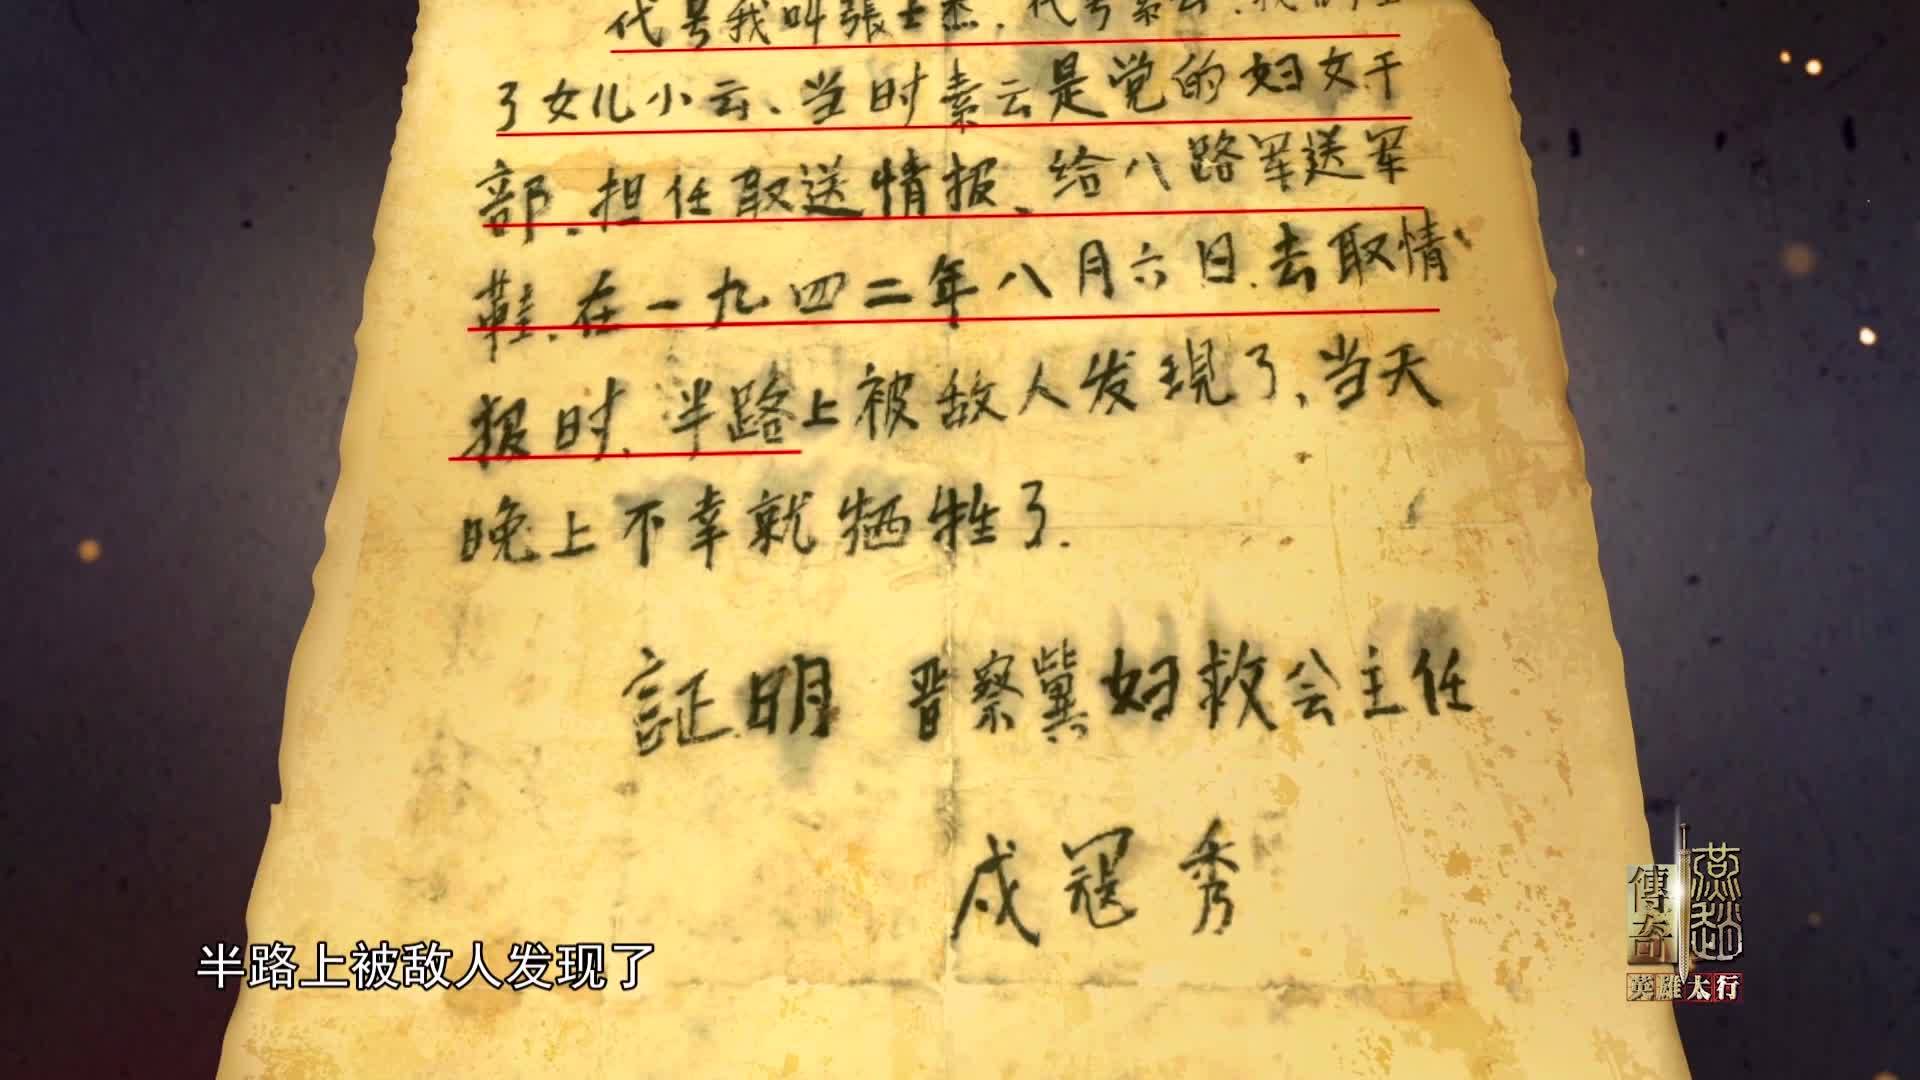 代号我叫張士杰.代号素云.我
了女儿小云、当时素云是党的妇女干
部.担任取送情报、给八路军送军
鞋.在一九四二年八月六日.去取情
报时.半路上被敌人发現了、当天
晚上不幸就牺牲了.
証明 晋察冀妇救会主任
戎冠秀
半路上被敌人发现了
燕赵
傳奇
英雄太行